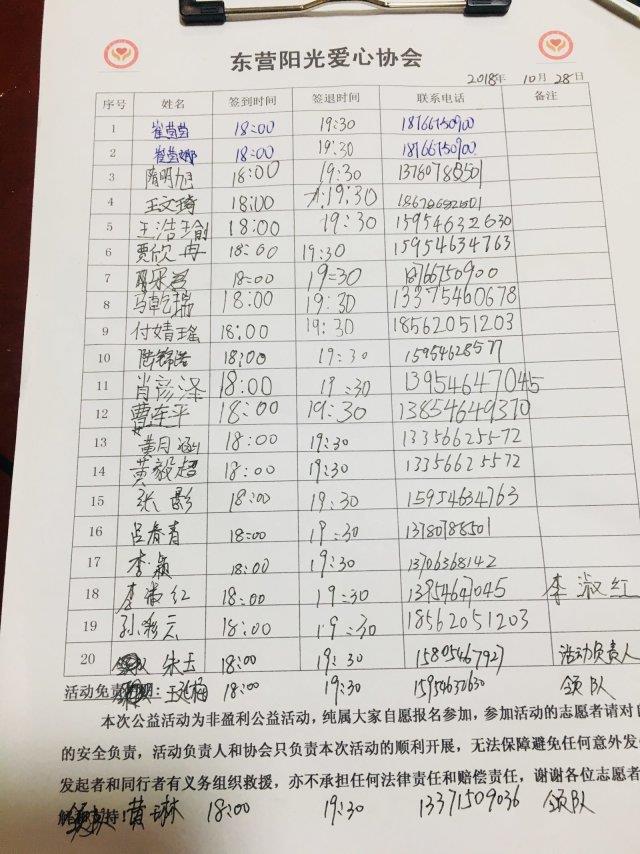 东营阳光爱心协会
2018年 10月 28日
序号 姓名 签到时间 签退时间 联系电话 备注
1 崔莹莹 18:00 19:30 18766750900
2 崔莹娜 18:00 19:30 18766750900
3 隋明旭 18:00 19:30 13780788501
4 王文琦 18:00 19:30
5 王浩瑜 18:00 19:30 15954632630
6 贾欣冉 18:00 19:30 15954634763
7 18:00 19:30 18766750900
8 马乾瑞 18:00 19:30 13375460678
9 付婧瑶 18:00 19:30 18562051203
10 陆锦浩 18:00 19:30 15954628577
11 肖彭泽 18:00 19:30 13954647045
12 曹连平 18:00 19:30 13854649370
13 黄月涵 18:00 19:30 13356625572
14 黄毅超 18:00 19:30 13356625572
15 张彭 18:00 19:30 15954634763
16 吕春青 18:00 19:30 13780788501
17 李颖 18:00 19:30 13706368142
18 李淑红 18:00 19:30 13954647045 李淑红
19 孙彩云 18:00 19:30 18562051203
20 朱玉 18:00 19:30 15805467927 活动负责人
活动免责 明： 王延梅 18:00 19:30 15954632630 领队
本次公益活动为非盈利公益活动，纯属大家自愿报名参加，参加活动的志愿者请对自
的安全负责，活动负责人和协会只负责本次活动的顺利开展，无法保障避免任何意外发
发起者和同行者有义务组织救援，亦不承担任何法律责任和赔偿责任，谢谢各位志愿者
解 持！ 黄琳 18:00 19:30 13371509036 领队